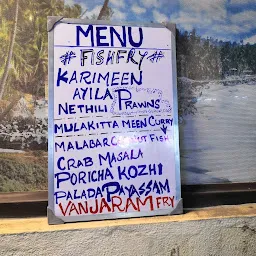 MENU
# FISHFRY #
KARIMEEN
AYILA
NETHILI PRAWNS
MULAKITTA MEEN CURRY
MALABAR COCONUT FISH
CRAB MASALA
PORICHA KOZHI
PALADA PAYASSAM
VANJARAM FRY